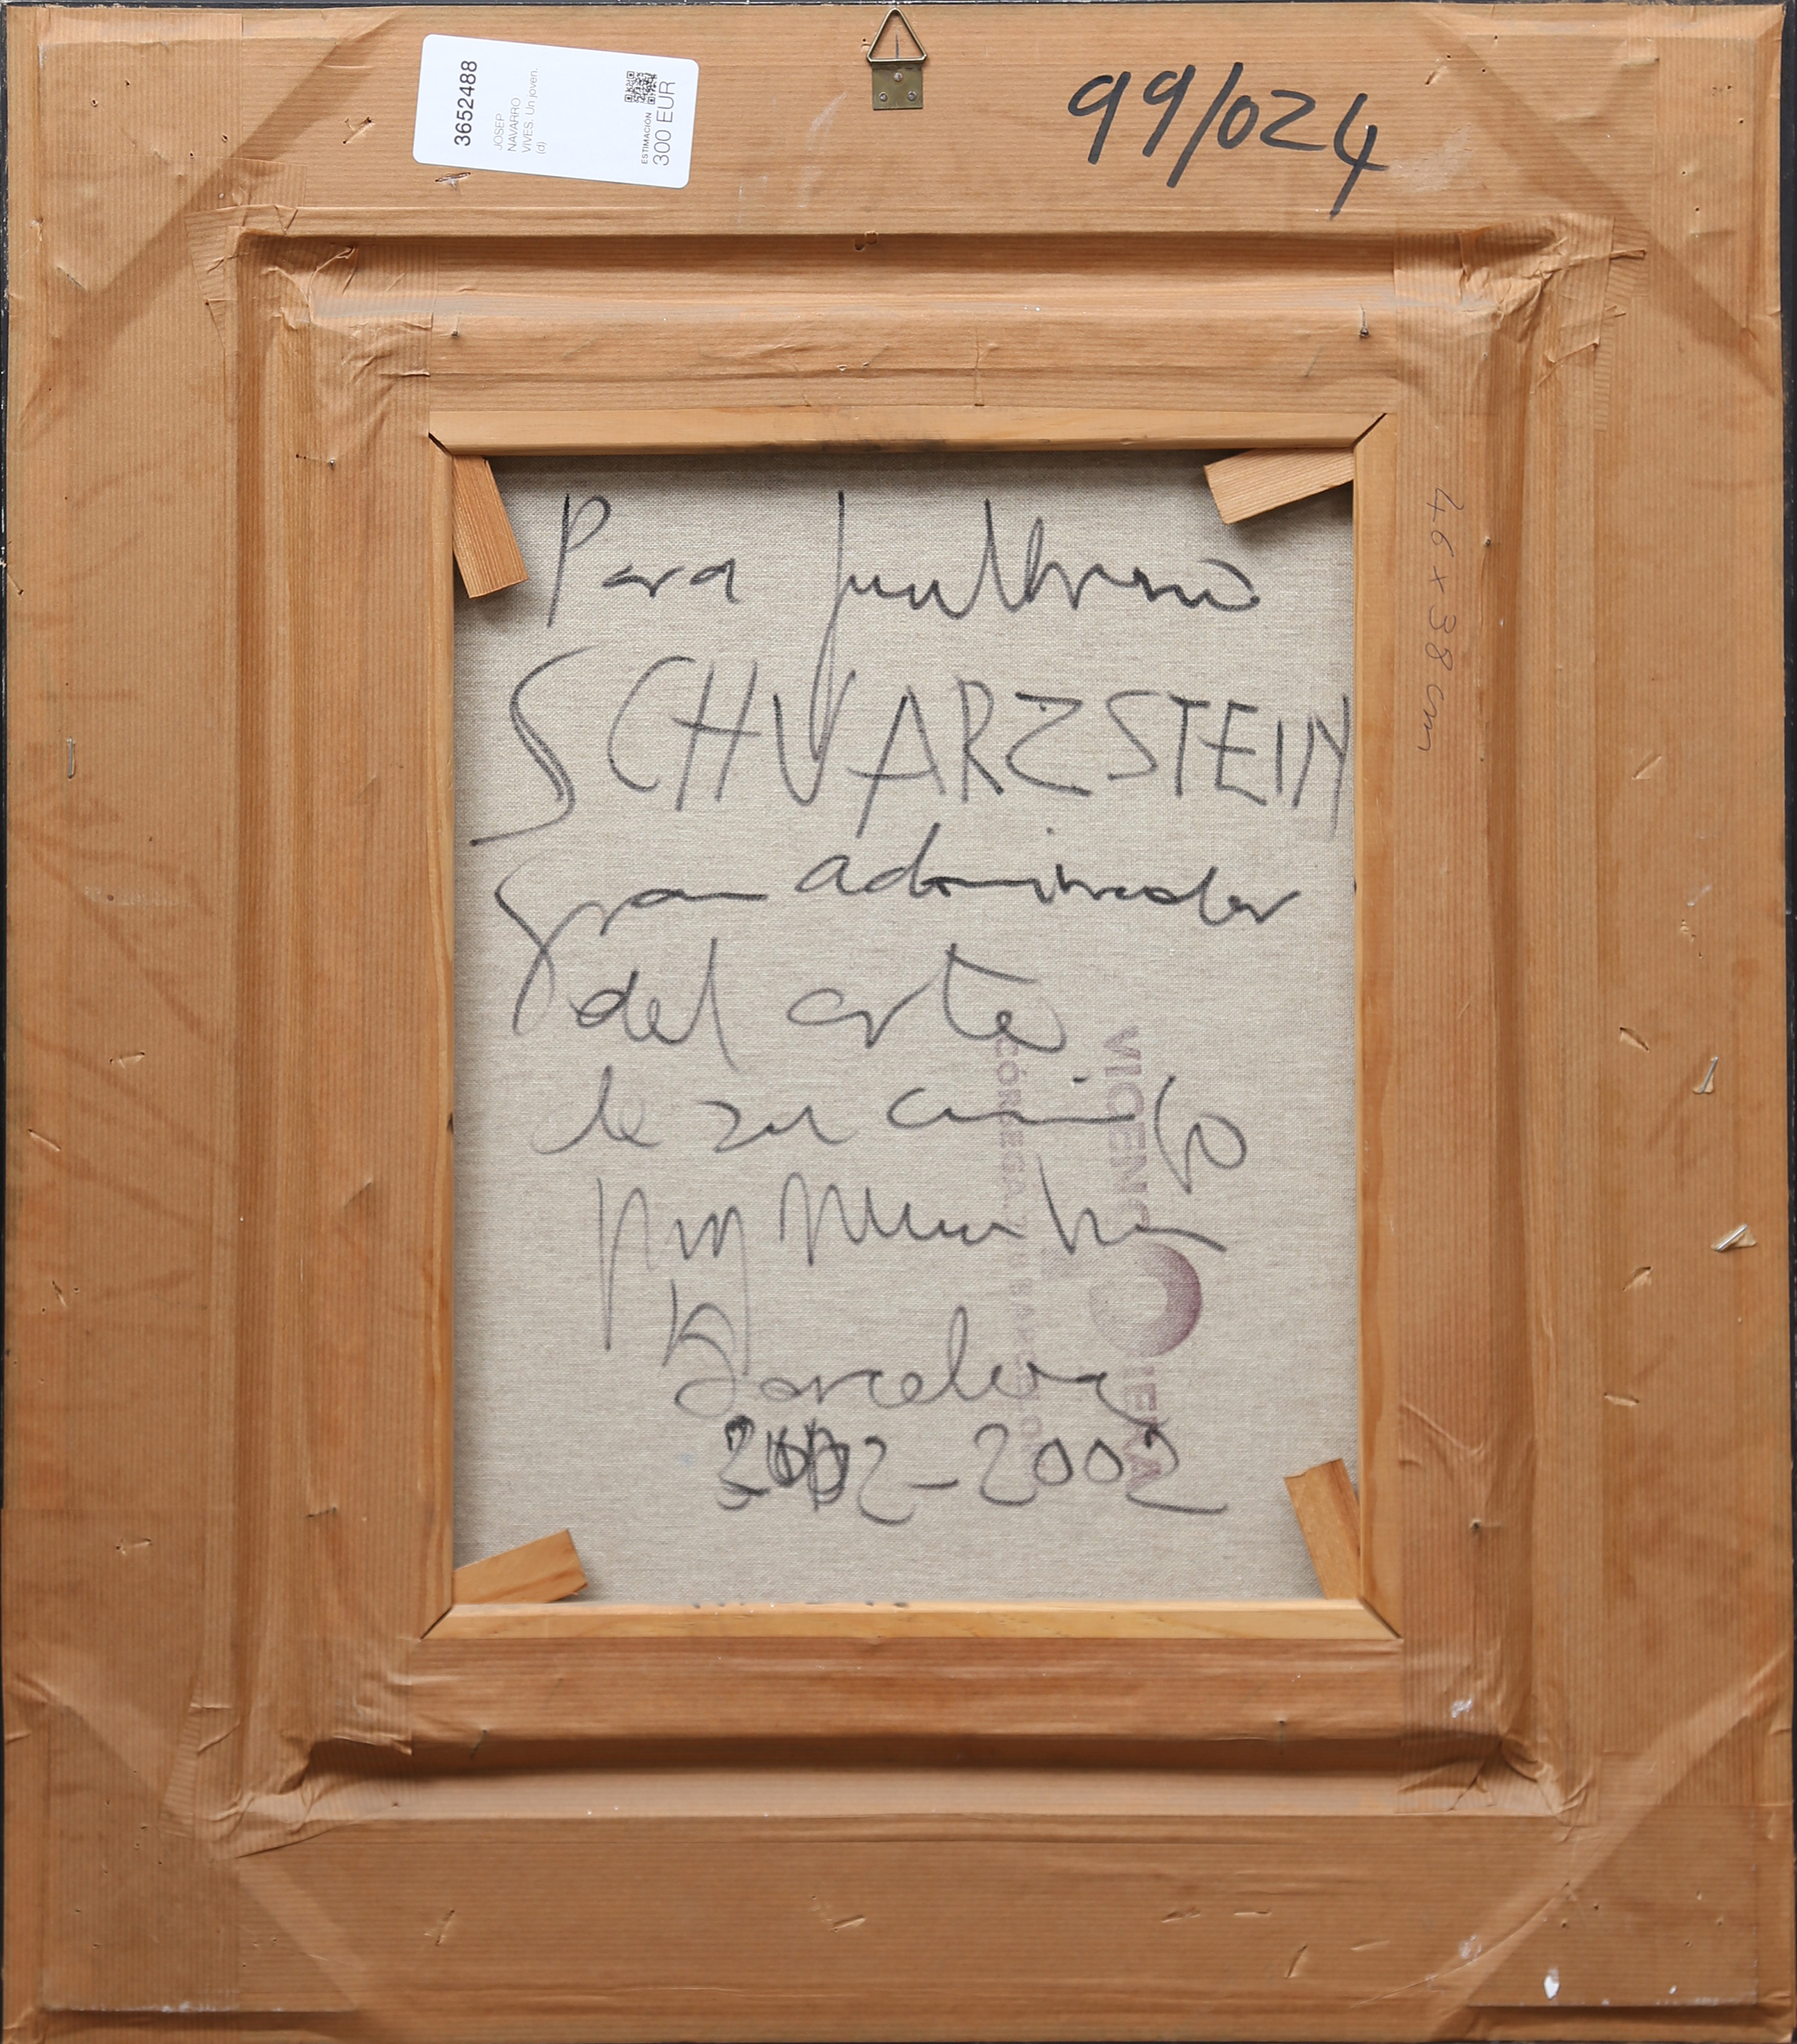 3652488
JOSEP
NAVARRO
VIVES. Un joven.
(d)
ESTIMACIÓN
300 EUR
99/024
46 x 38 cm
Para
SCHVARZSTEIN
gran admirador
del arte
de su amigo
Barcelona
2002-2002
VICENÇ
CÓRSEGA